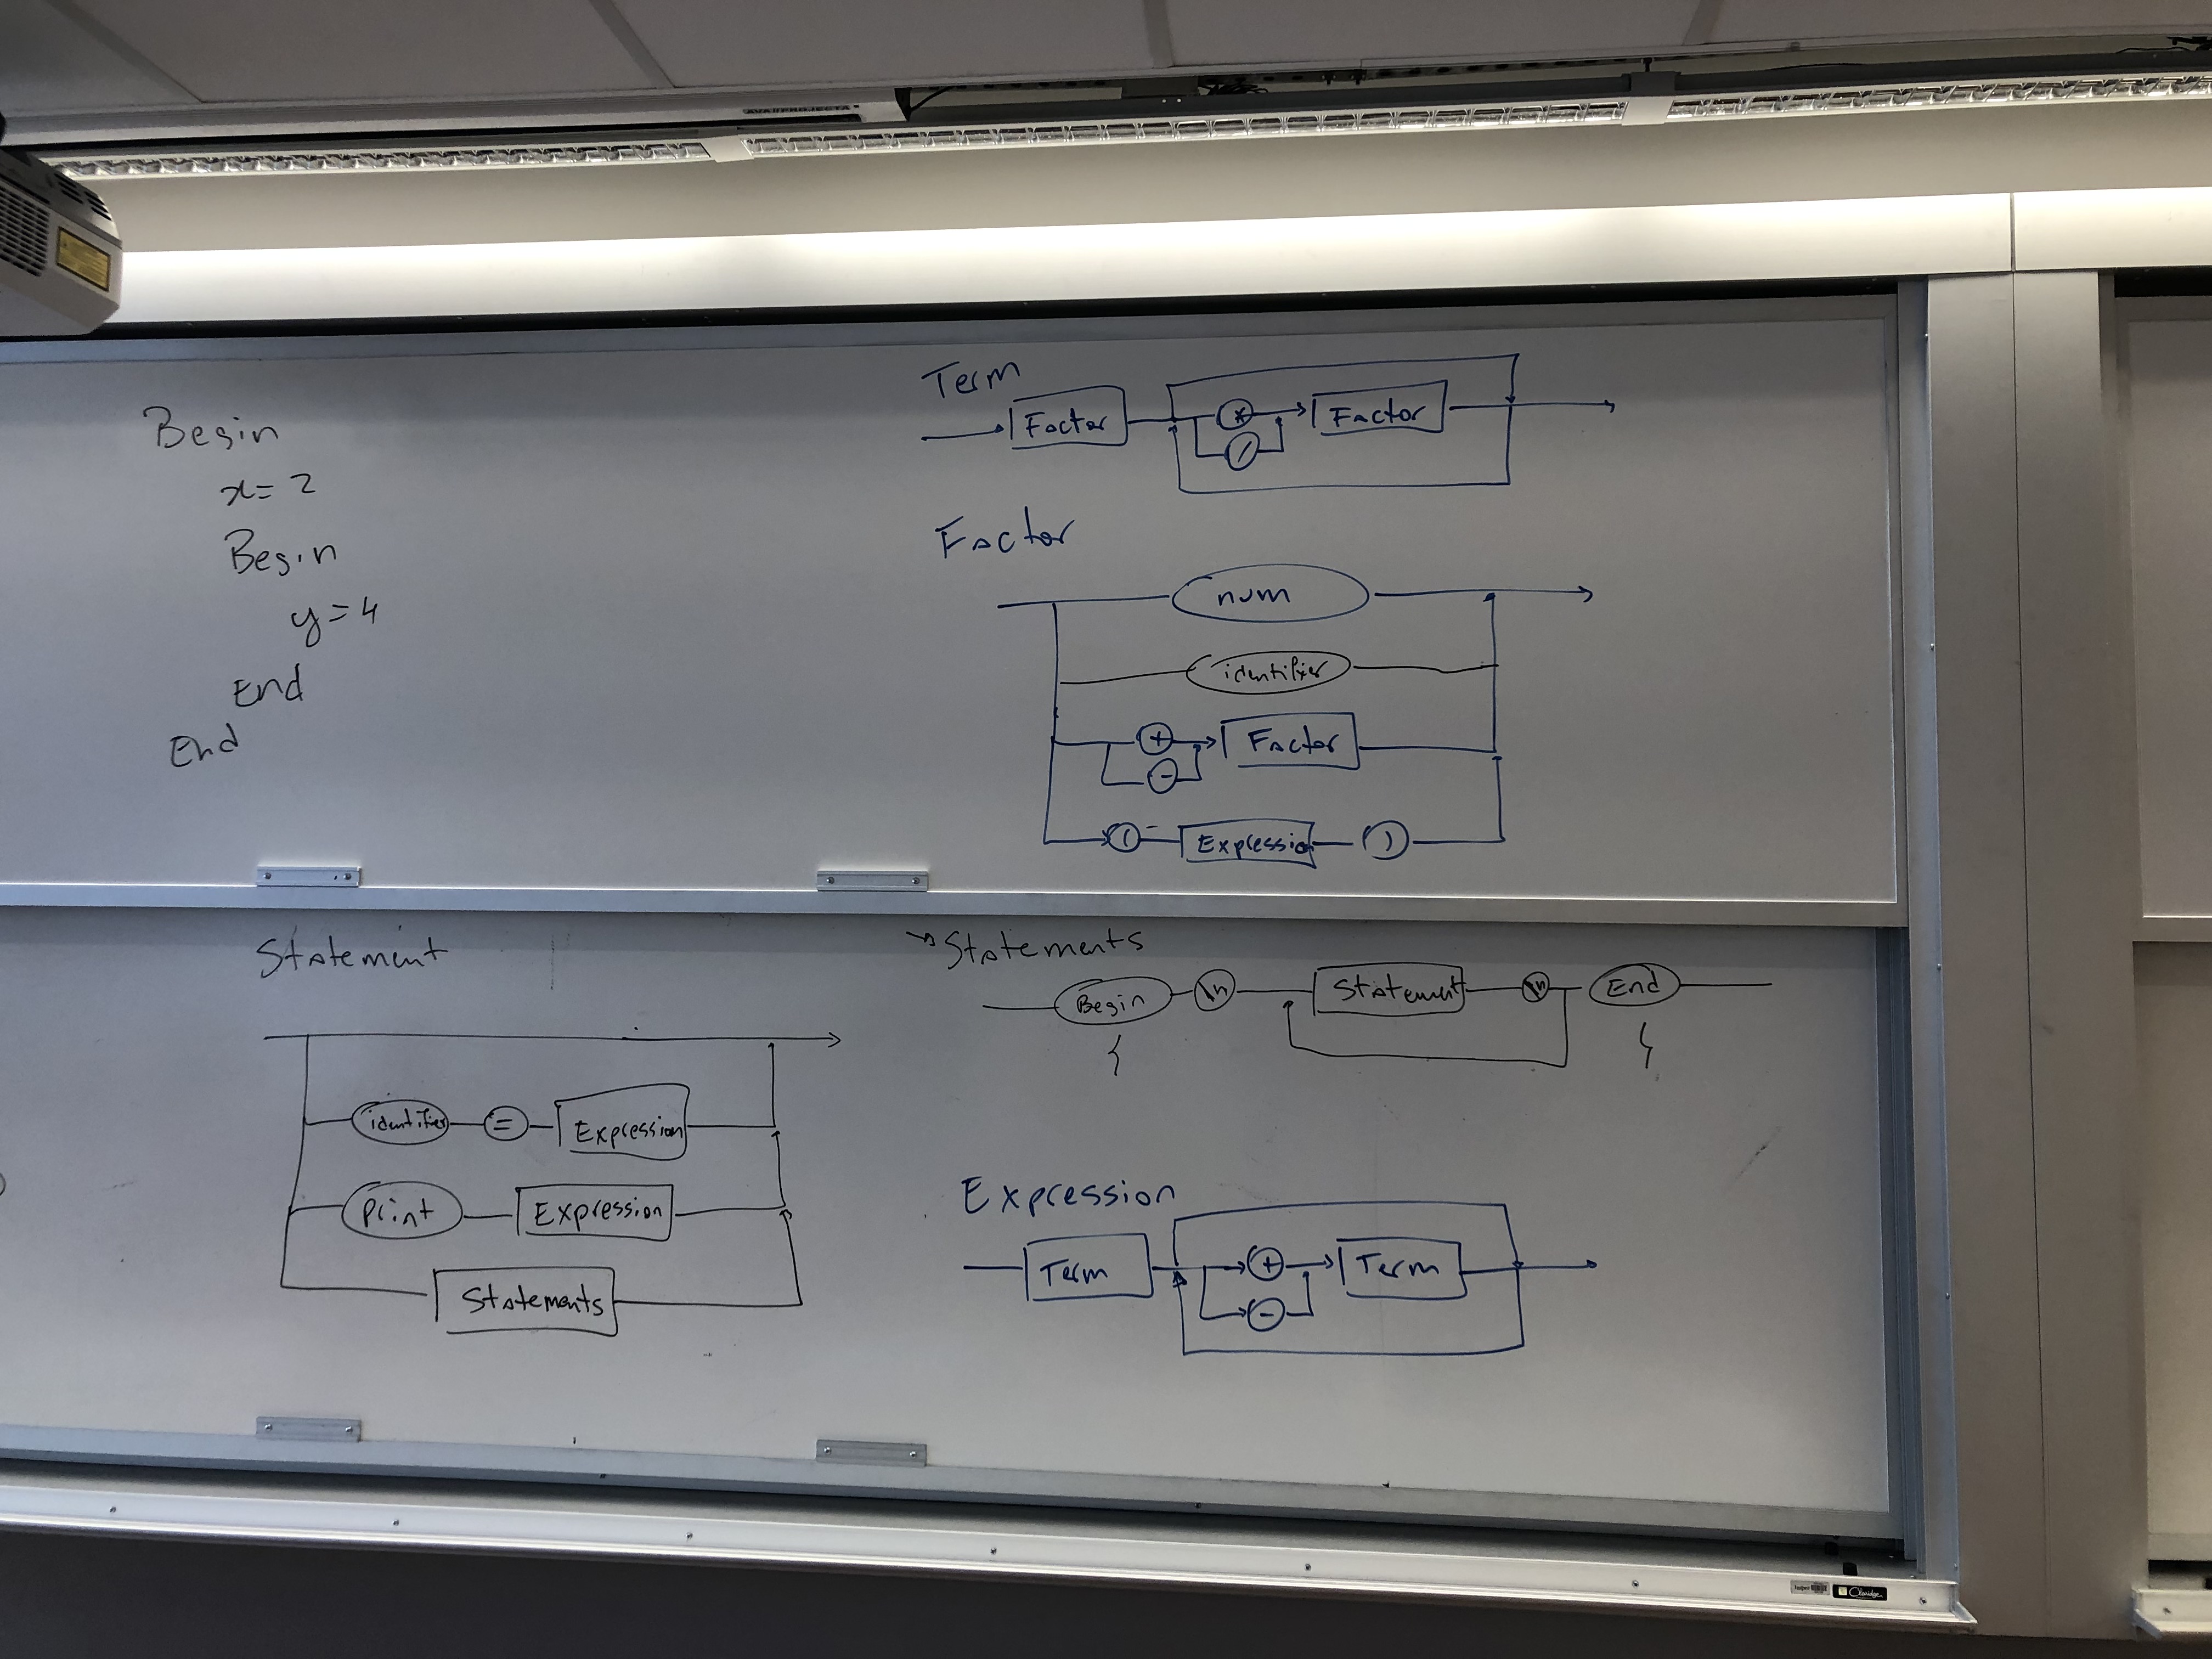 Begin
x = 2
Begin
y = 4
End
End
Term
Factor * Factor
/
Factor
num
identifier
+ Factor
-
( Expression )
Statement
identifier = Expression
Print Expression
Statements
Statements
Begin \n Statement \n End
{ }
Expression
Term + Term
-
Claridge